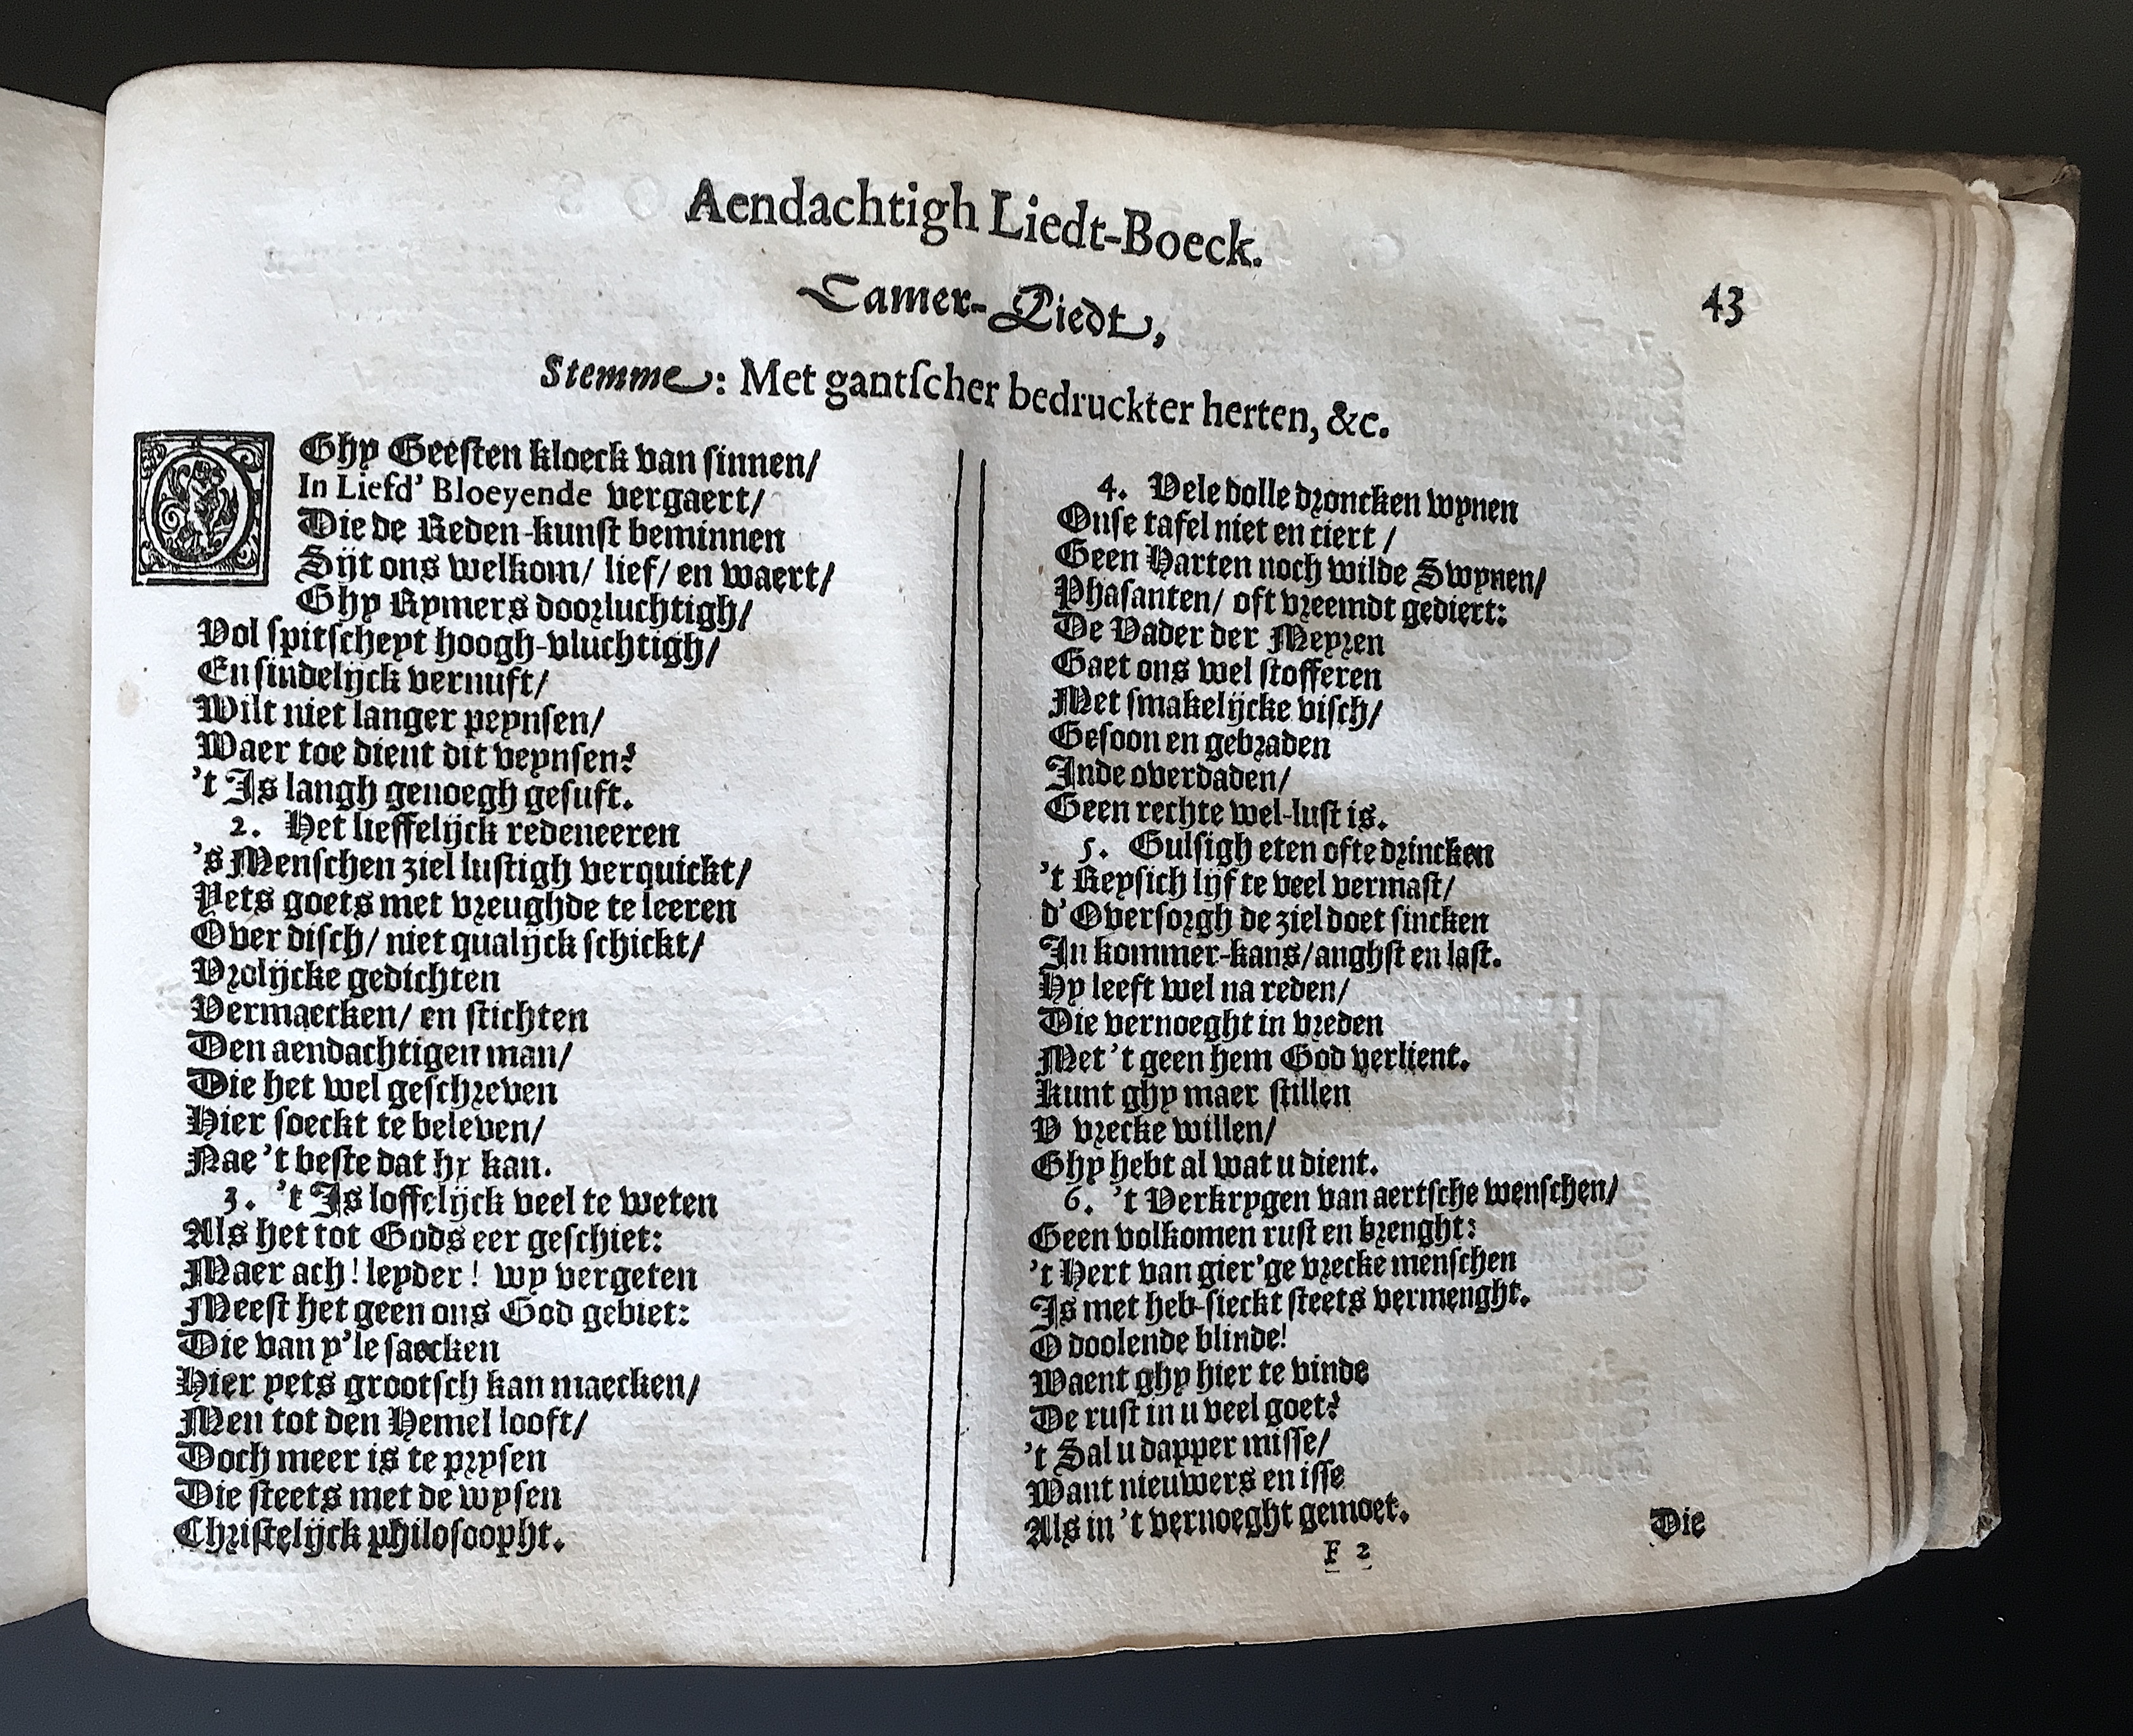 Aendachtigh Liedt-Boeck.
43
Camer-Liedt,
Stemme: Met gantſcher bedruckter herten, &c.
O Ghy Geeſten kloeck van ſinnen/
In Liefd' Bloeyende vergaert/
Die de Reden-kunſt beminnen
Sijt ons welkom/ lief/ en waert/
Ghy Rymers doorluchtigh/
Vol ſpitſcheyt hoogh-vluchtigh/
En ſindelijck vernuft/
Wilt niet langer peynſen/
Waer toe dient dit veynſen?
't Is langh genoegh geſuft.
2. Het lieffelijck redeneeren
's Menſchen ziel luſtigh verquickt/
Yets goets met vreughde te leeren
Over diſch/ niet qualijck ſchickt/
Vrolijcke gedichten
Vermaecken/ en ſtichten
Den aendachtigen man/
Die het wel geſchreven
Hier ſoeckt te beleven/
Nae 't beſte dat hy kan.
3. 't Is loffelijck veel te weten
Als het tot Gods eer geſchiet:
Maer ach! leyder! wy vergeten
Meeſt het geen ons God gebiet:
Die van y'le ſaecken
Hier yets grootſch kan maecken/
Men tot den Hemel looft/
Doch meer is te pryſen
Die ſteets met de wyſen
Chriſtelijck philoſoopht.
4. Vele dolle droncken wynen
Onſe tafel niet en ciert/
Geen Harten noch wilde Swynen/
Phaſanten/ oft vreemdt gediert:
De Vader der Meyren
Gaet ons wel ſtofferen
Met ſmakelijcke viſch/
Geſoon en gebraden
Inde overdaden/
Geen rechte wel-luſt is.
5. Gulſigh eten ofte drincken
't Reyſich lijf te veel vermaſt/
d'Overſorgh de ziel doet ſincken
In kommer-kans/ anghſt en laſt.
Hy leeft wel na reden/
Die vernoeght in vreden
Met 't geen hem God verlient.
Kunt ghy maer ſtillen
V vrecke willen/
Ghy hebt al wat u dient.
6. 't Verkrygen van aertſche wenſchen/
Geen volkomen ruſt en brenght:
't Hert van gier'ge vrecke menſchen
Is met heb-ſieckt ſteets vermenght.
O doolende blinde!
Waent ghy hier te vinde
De ruſt in u veel goet?
't Sal u dapper miſſe/
Want nieuwers en iſſe
Als in 't vernoeght gemoet.
F 2
Die